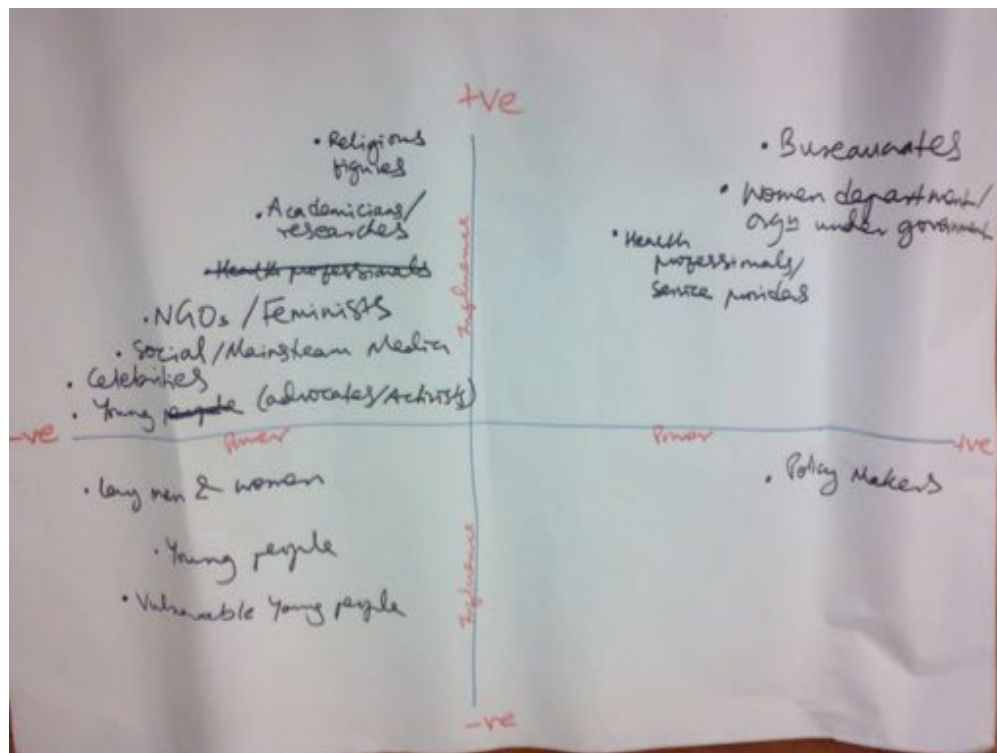 +ve
• Religious
figures
• Academicians/
researches
• Health professionals
• NGOs / Feminists
• Social / Mainsteam Media
• Celebrities
• Young people (advocates/Activists)
• Bureaucrates
• Women department/
orgs under government
• Health
professionals/
service providers
Influence
-ve
Power
Power
+ve
• Lay men & women
• Young people
• Vulnerable Young people
• Policy Makers
Influence
-ve